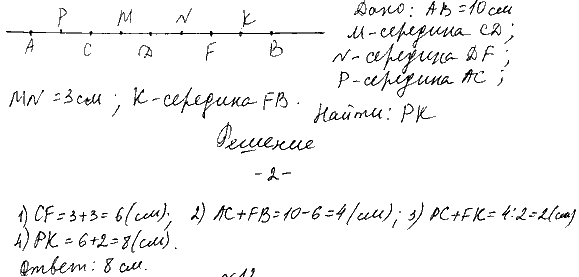 P M N K
A C D F B
Дано: AB = 10 см
M-середина CD;
N-середина DF;
P-середина AC;
MN = 3 см; K-середина FB.
Найти: PK
Решение
- 2 -
1) CF = 3 + 3 = 6 (см); 2) AC + FB = 10 - 6 = 4 (см); 3) PC + FK = 4 : 2 = 2 (см)
4) PK = 6 + 2 = 8 (см).
Ответ: 8 см.